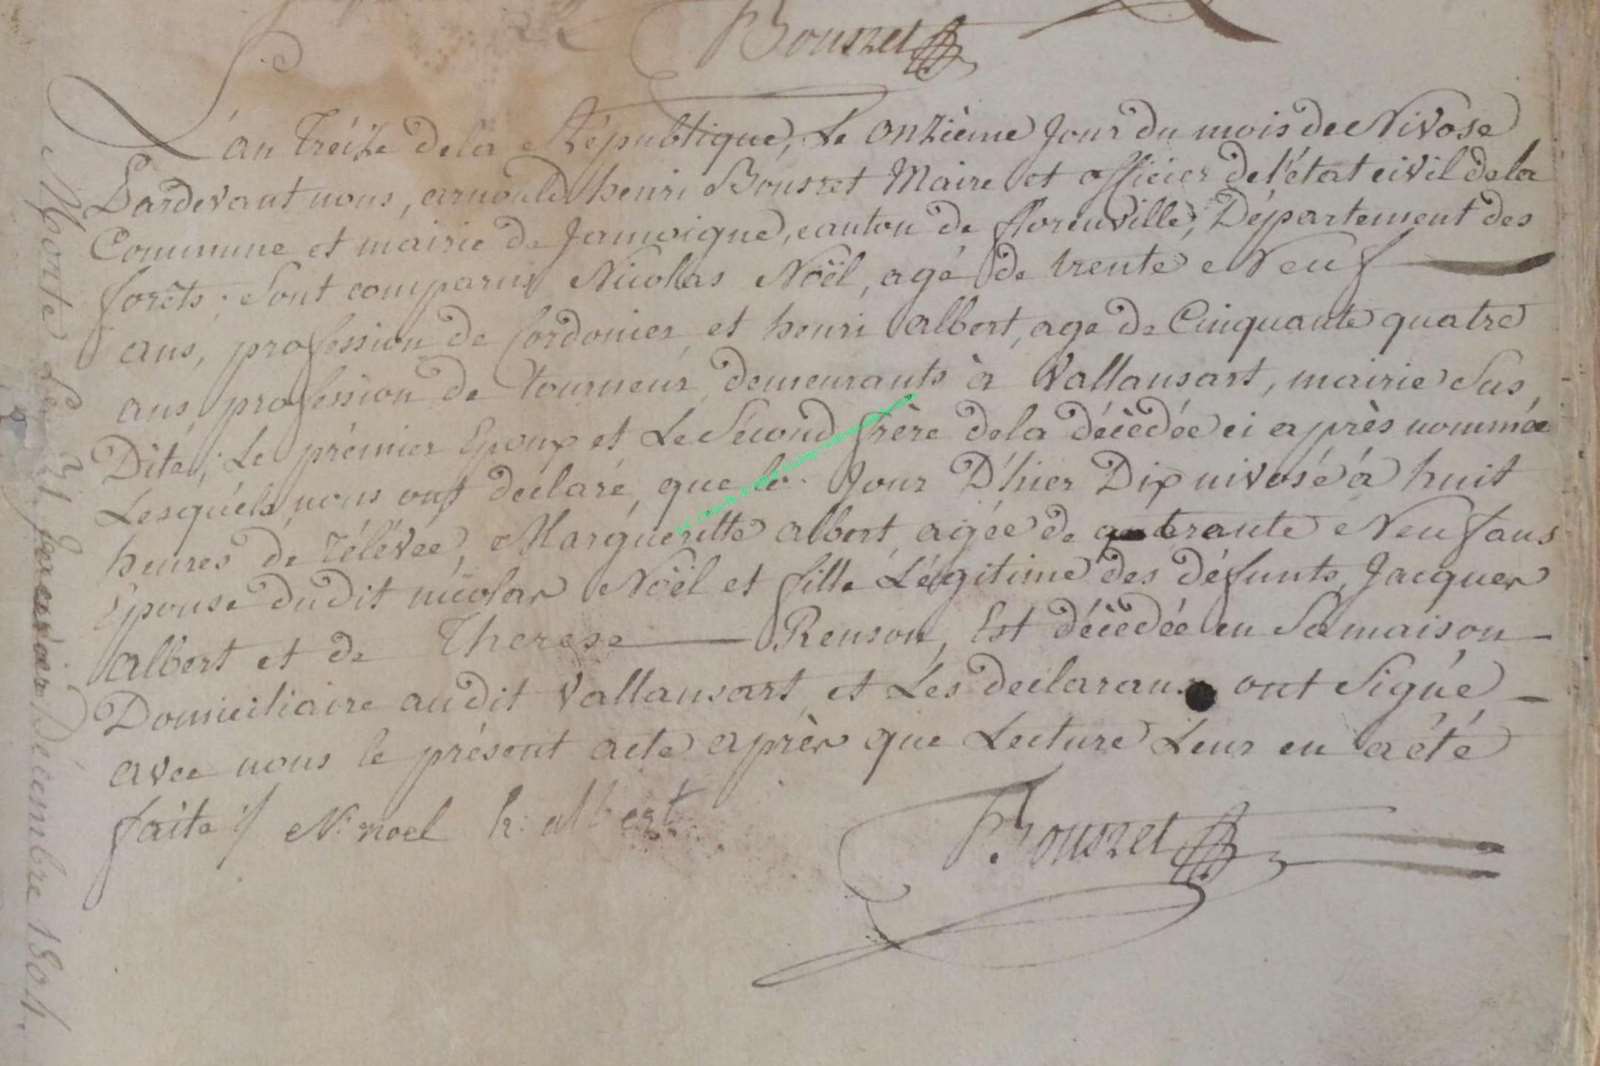 Bouszet
L'an treize de la République, Le onzième Jour du mois de Nivose
Pardevant nous, arnould henri Bouszet Maire et officier de l'état civil de la
Commune et mairie de Jamoigne, canton de florenville, Département des
forêts; Sont comparus Nicolas Noël, agé de trente Neuf
ans, profession de Cordonier, et henri albert, age de Cinquante quatre
ans profession de tourneur, demeurants à Vallansart, mairie Sus
Dite; Le prémier Epoux et Le Second frère de la décédée ci après nommée
Lesquéls nous ont déclaré, que le Jour D'hier Dix nivosé à huit
heures de rélévée, Marguéritte albert, agée de quarante Neuf ans
Epouse dudit nicolas Noël et fille Légitime des défunts, Jacques
albert et de Therese Renson, Est décédée en Sa maison
Domiciliaire audit Vallansart, et Les declarans ont Signé
avec nous le présent acte après que Lecture Leur en a été
faite ;/ N: noel h: albert
Bouszet
Morte Le 31 Décembre 1804.